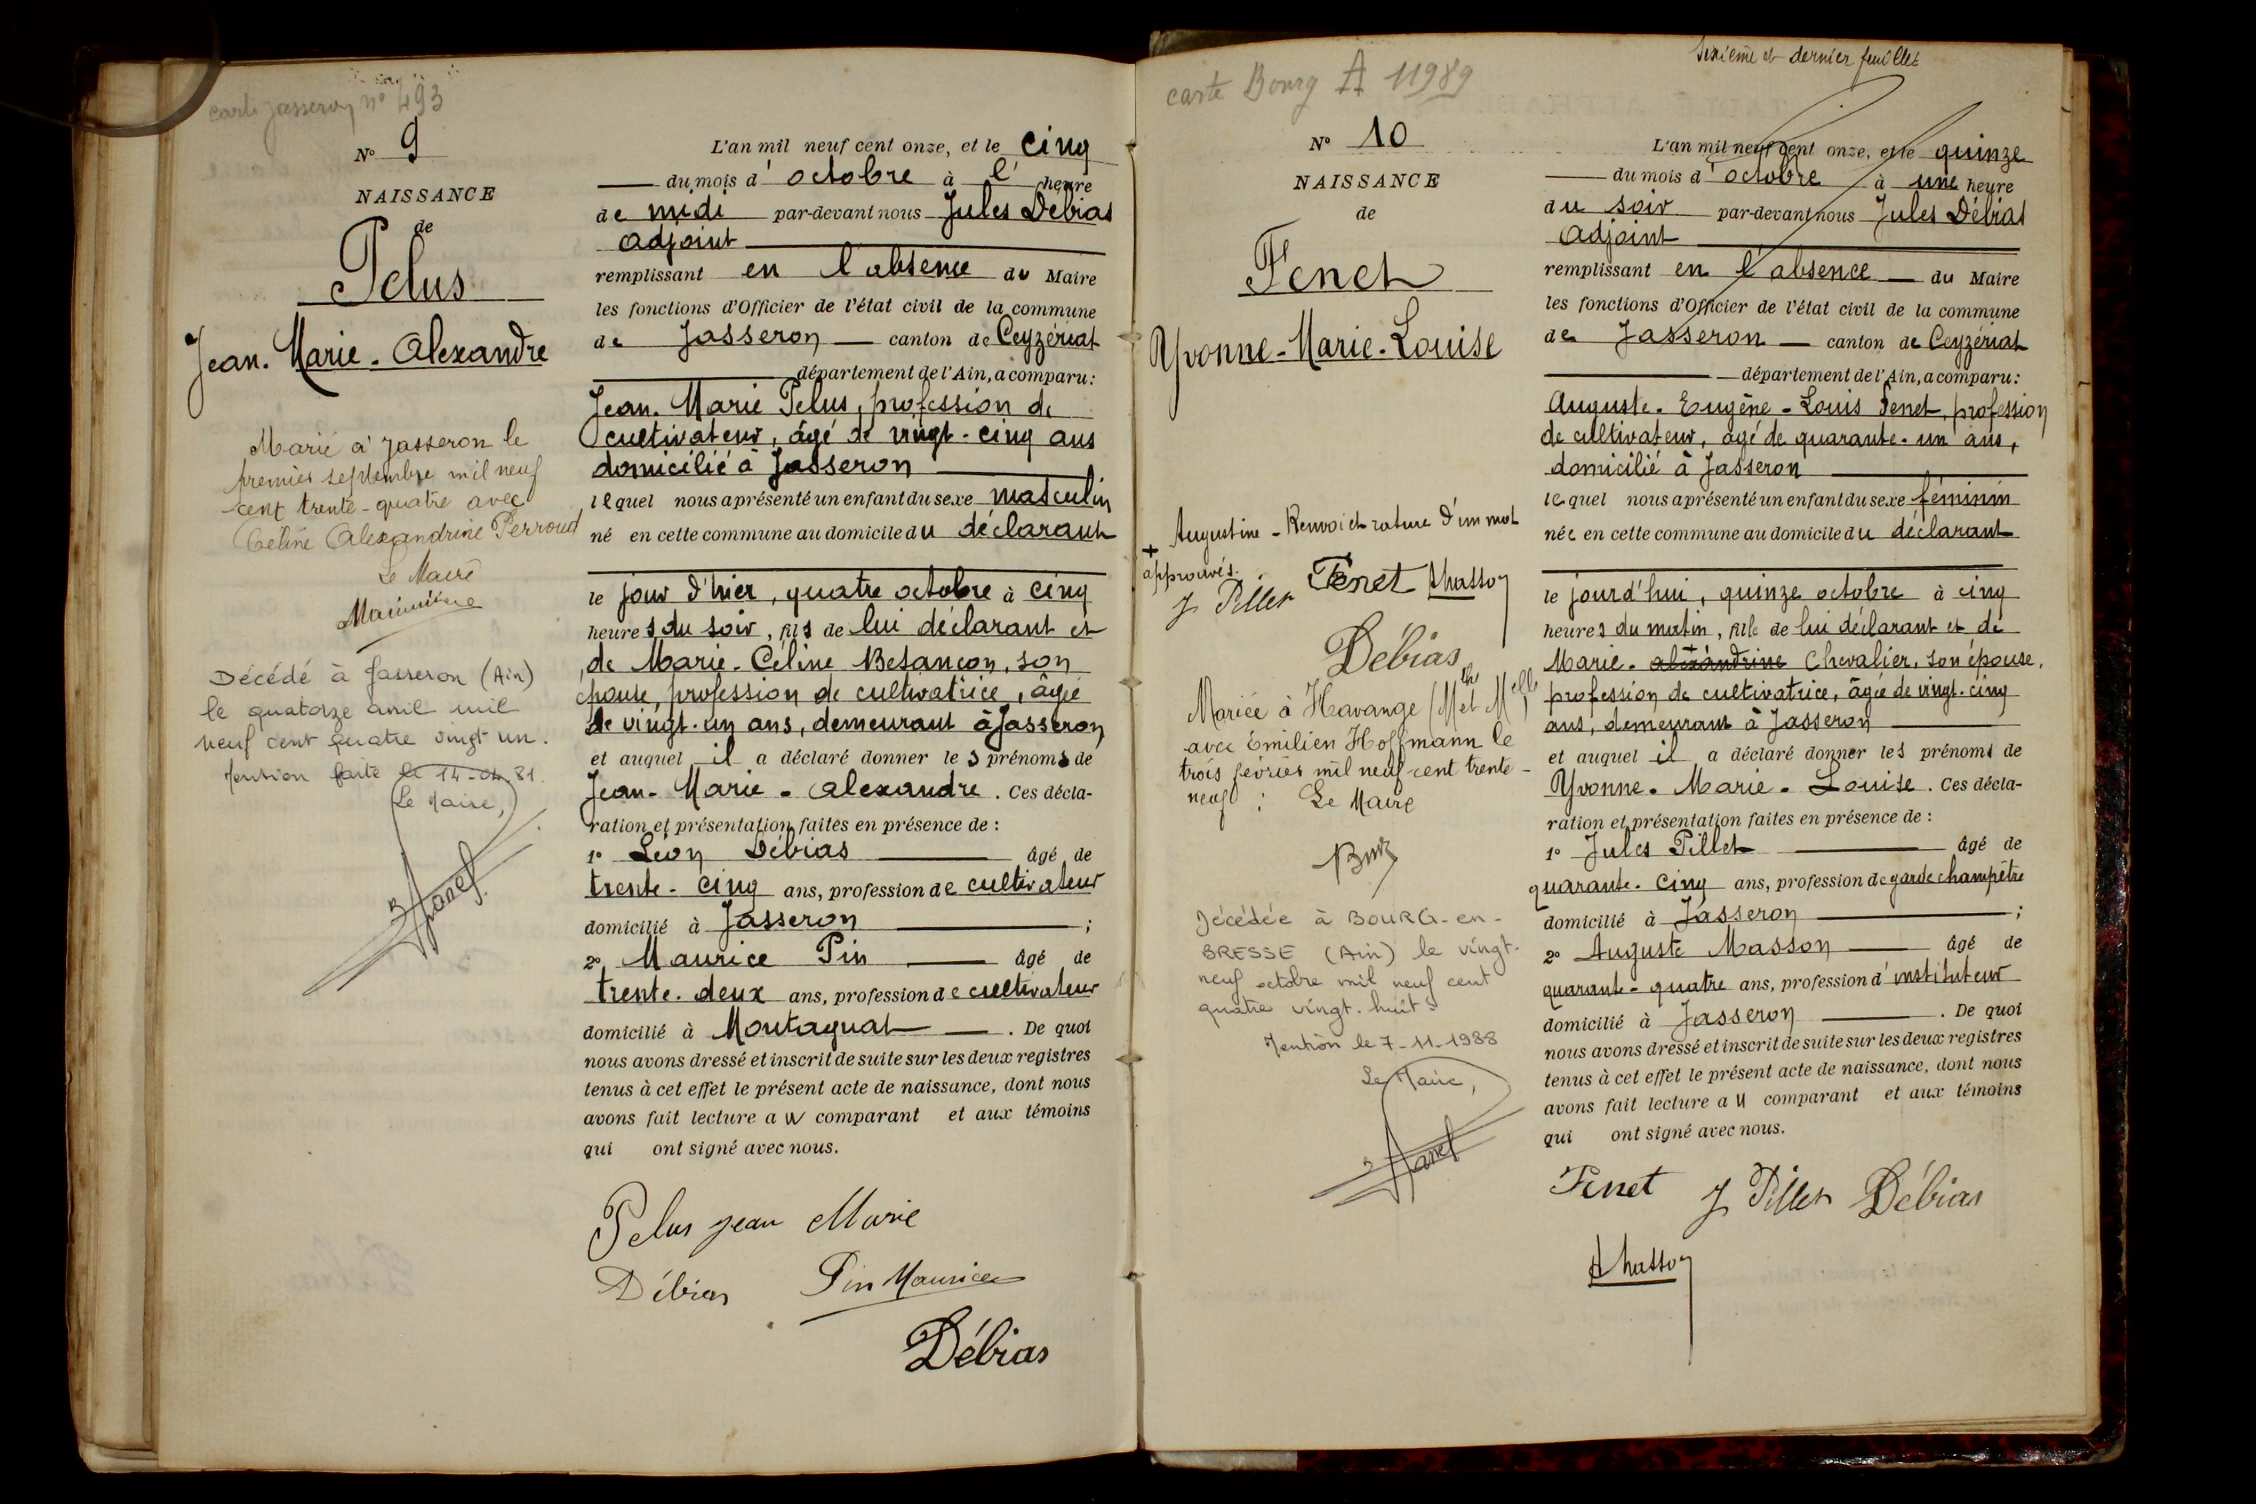 carte Jasseron n° 493
N° 9
NAISSANCE
de
Pelus
Jean. Marie. Alexandre
Marié à Jasseron le
premier septembre mil neuf
cent trente-quatre avec
Céline Alexandrine Perroud
Le Maire
Décédé à Jasseron (Ain)
le quatorze avril mil
neuf cent quatre vingt un.
Mention faite le 14-04-81.
Le Maire,
L'an mil neuf cent onze, et le cinq
du mois d'octobre à l' heure
de midi par-devant nous Jules Débias
adjoint
remplissant en l'absence du Maire
les fonctions d'Officier de l'état civil de la commune
de Jasseron canton de Ceyzériat
département de l'Ain, a comparu:
Jean. Marie Pelus, profession de
cultivateur, âgé de vingt-cinq ans
domicilié à Jasseron
lequel nous a présenté un enfant du sexe masculin
né en cette commune au domicile du déclarant
le jour d'hier, quatre octobre à cinq
heures du soir, fils de lui déclarant et
de Marie-Céline Besançon, son
épouse, profession de cultivatrice, âgée
de vingt-un ans, demeurant à Jasseron
et auquel il a déclaré donner les prénoms de
Jean-Marie-Alexandre. Ces décla-
ration et présentation faites en présence de :
1° Léon Débias âgé de
trente-cinq ans, profession de cultivateur
domicilié à Jasseron ;
2° Maurice Pin âgé de
trente-deux ans, profession de cultivateur
domicilié à Montagnat . De quoi
nous avons dressé et inscrit de suite sur les deux registres
tenus à cet effet le présent acte de naissance, dont nous
avons fait lecture au comparant et aux témoins
qui ont signé avec nous.
Pelus jean Marie
Débias Pin Maurice
Débias
Sixième et dernier feuillet
carte Bourg A 11989
N° 10
NAISSANCE
de
Fenet
Yvonne-Marie-Louise
+ Augustine - Renvoi et rature d'un mot
approuvés.
J Pillet Fenet AMasson
Débias
Mariée à Havange (Mthe et Melle)
avec Emilien Hoffmann le
trois février mil neuf cent trente-
neuf : Le Maire
Décédée à BOURG-en-
BRESSE (Ain) le vingt-
neuf octobre mil neuf cent
quatre vingt-huit.
Mention le 7-11-1988
Le Maire,
L'an mil neuf cent onze, et le quinze
du mois d'octobre à une heure
du soir par-devant nous Jules Débias
adjoint
remplissant en l'absence du Maire
les fonctions d'Officier de l'état civil de la commune
de Jasseron canton de Ceyzériat
département de l'Ain, a comparu:
Auguste-Eugène-Louis Fenet, profession
de cultivateur, âgé de quarante-un ans,
domicilié à Jasseron
lequel nous a présenté un enfant du sexe féminin
née en cette commune au domicile du déclarant
le jourd'hui, quinze octobre à cinq
heures du matin, fille de lui déclarant et de
Marie-alexandrine + Chevalier, son épouse,
profession de cultivatrice, âgée de vingt-cinq
ans, demeurant à Jasseron
et auquel il a déclaré donner les prénoms de
Yvonne-Marie-Louise. Ces décla-
ration et présentation faites en présence de :
1° Jules Pillet âgé de
quarante-cinq ans, profession de garde champêtre
domicilié à Jasseron ;
2° Auguste Masson âgé de
quarante-quatre ans, profession d'instituteur
domicilié à Jasseron . De quoi
nous avons dressé et inscrit de suite sur les deux registres
tenus à cet effet le présent acte de naissance, dont nous
avons fait lecture au comparant et aux témoins
qui ont signé avec nous.
Fenet J Pillet Débias
AMasson